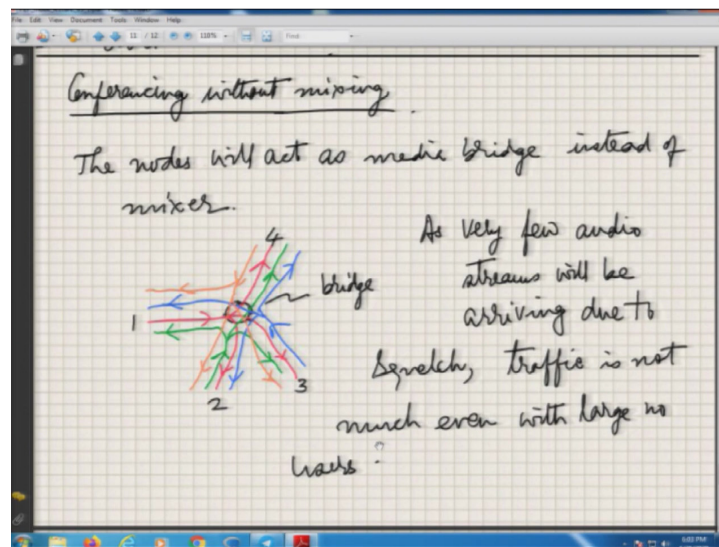 File Edit View Document Tools Window Help
11 / 12 110% Find
Conferencing without mixing.
The nodes will act as media bridge instead of
mixer.
As very few audio
streams will be
arriving due to
Squelch, traffic is not
much even with large no
users.
4
bridge
1
3
2
5:03 PM